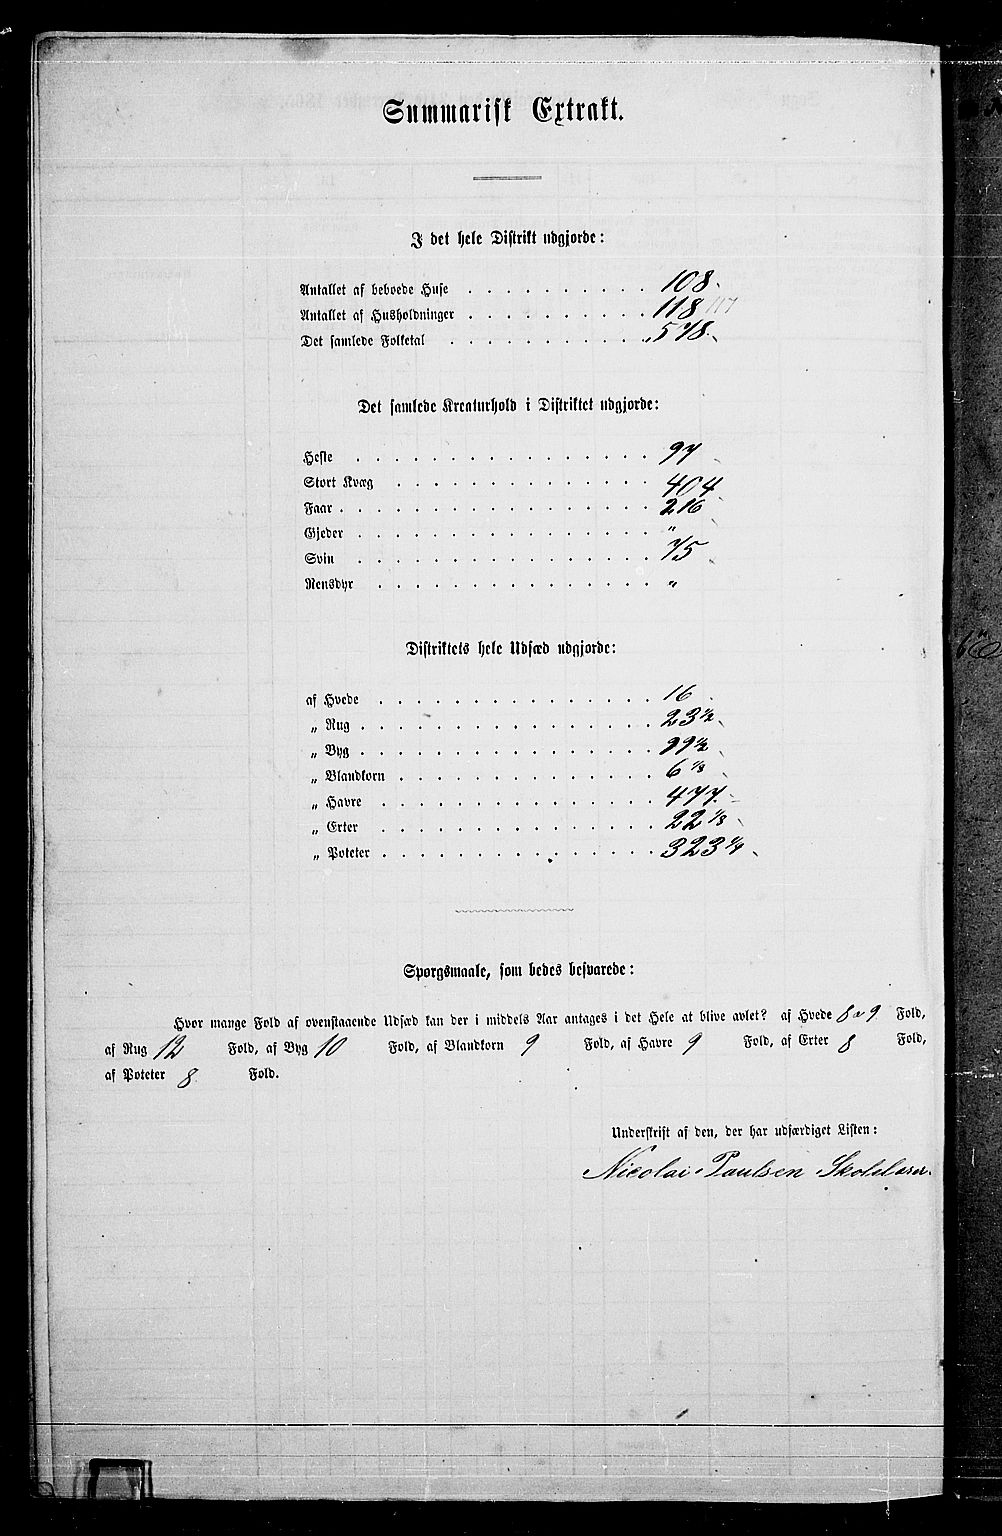 Summarisk Extrakt.
I det hele Distrikt udgjorde:
Antallet af beboede Huse . . . . . . . . . . 108.
Antallet af Husholdninger . . . . . . . . . . 118 117
Det samlede Folketal . . . . . . . . . . . 578.
Det samlede Kreaturhold i Distriktet udgjorde:
Heste . . . . . . . . . . . . . . . . 97
Stort Kvæg . . . . . . . . . . . . . . 404
Faar . . . . . . . . . . . . . . . . . 216
Gjeder . . . . . . . . . . . . . . . . "
Svin . . . . . . . . . . . . . . . . 75
Rensdyr . . . . . . . . . . . . . . . "
Distriktets hele Udsæd udgjorde:
af Hvede . . . . . . . . . . . . . . . 16
„ Rug . . . . . . . . . . . . . . . . 23 1/2
„ Byg . . . . . . . . . . . . . . . . 99 1/2
„ Blandkorn . . . . . . . . . . . . . . 6 1/8
„ Havre . . . . . . . . . . . . . . . 477.
„ Erter . . . . . . . . . . . . . . . 22 1/8
„ Poteter . . . . . . . . . . . . . . . 323 1/4
Sporgsmaale, som bedes besvarede:
Hvor mange Fold af ovenstaaende Udsæd kan der i middels Aar antages i det Hele at blive avlet? af Hvede 8 a 9 Fold,
af Rug 12 Fold, af Byg 10 Fold, af Blandkorn 9 Fold, af Havre 9 Fold, af Erter 8 Fold,
af Poteter 8 Fold.
Underskrift af den, der har udfærdiget Listen:
Nicolai Paulsen Skolelærer.